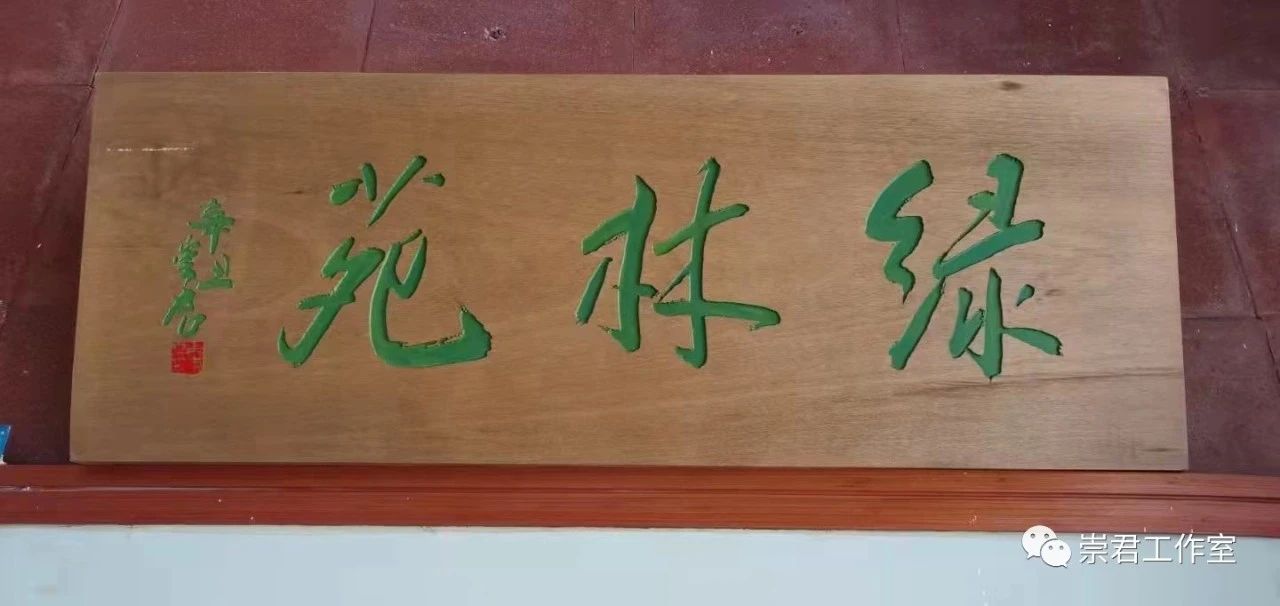 绿林苑
辛丑
崇君
崇君工作室